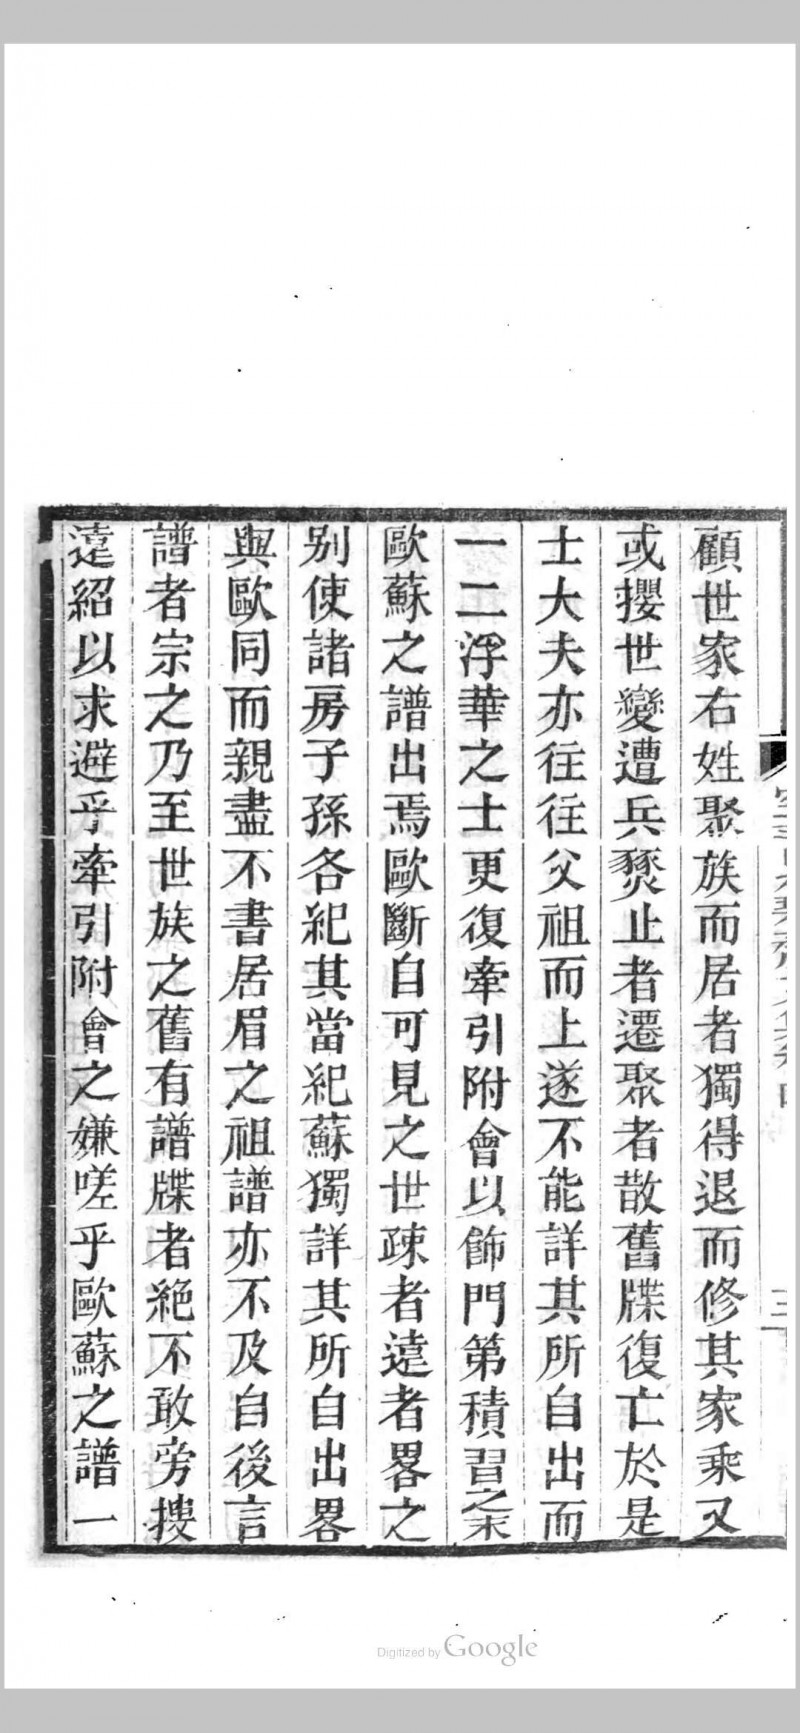 顧世家右姓聚族而居者獨得退而修其家乘又
或攖世變遭兵燹止者遷聚者散舊牒復亡於是
士大夫亦往往父祖而上遂不能詳其所自出而
一二浮華之士更復牽引附會以飾門第積習之末
歐蘇之譜出焉歐斷自可見之世疎者遠者畧之
別使諸房子孫各紀其當紀蘇獨詳其所自出畧
與歐同而親盡不書居眉之祖譜亦不及自後言
譜者宗之乃至世族之舊有譜牒者絕不敢旁搜
遠紹以求避乎牽引附會之嫌嗟乎歐蘇之譜一
Digitized by Google